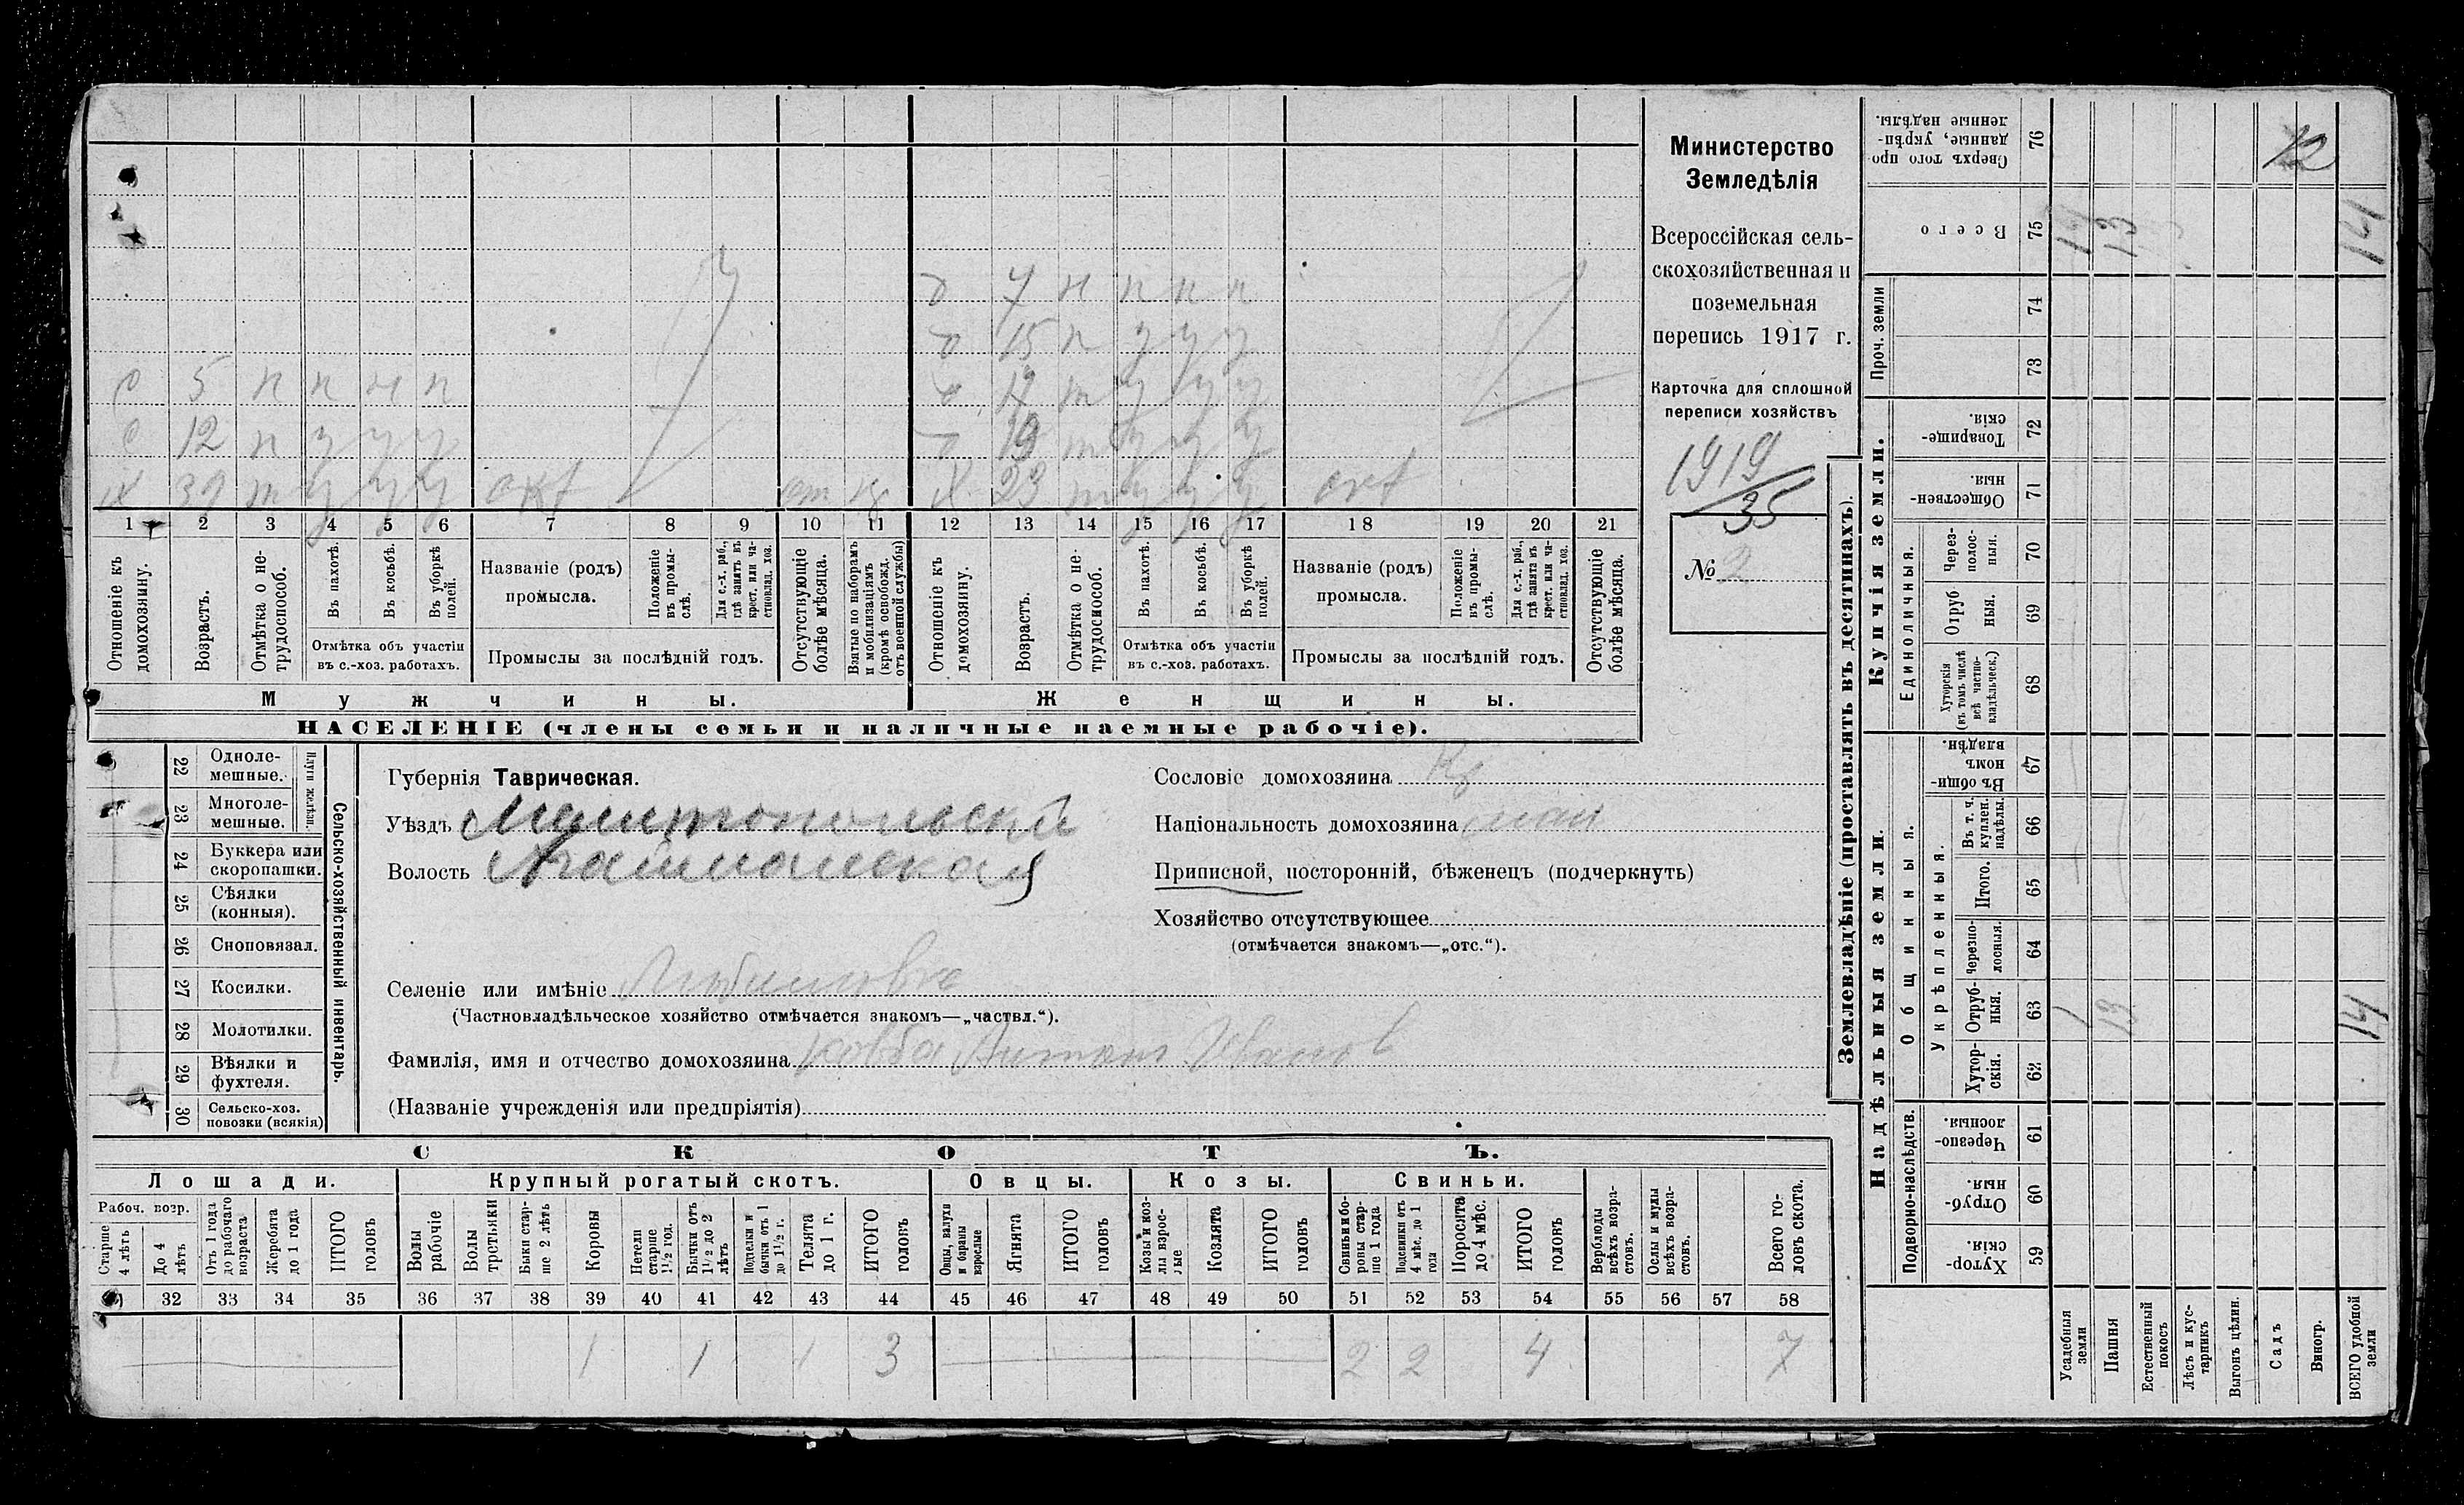 Министерство
Земледѣлія
Всероссійская сель-
скохозяйственная и
поземельная
перепись 1917 г.
Карточка для сплошной
переписи хозяйствъ
1919
35
№ 2
д 7 н н н н
д 15 п у у у
с 5 н н н н
д 17 т у у у
с 12 п у у у
д 19 т у у у
х 39 т у у у
х 23 т у у у
1 2 3 4 5 6 7 8 9 10 11 12 13 14 15 16 17 18 19 20 21
Отношеніе къ домохозяину.
Возрастъ.
Отмѣтка о не-трудоспособ.
Въ пахотѣ.
Въ косьбѣ.
Въ уборкѣ полей.
Отмѣтка объ участіи
въ с.-хоз. работахъ.
Названіе (родъ)
промысла.
Положеніе въ промы-слѣ.
Для с.-х. раб., гдѣ занятъ въ крест. или ча-стновлад. хоз.
Промыслы за послѣдній годъ.
Отсутствующіе болѣе мѣсяца.
Взятые по наборамъ и мобилизаціямъ (кромѣ освобожд. отъ военной службы)
Отношеніе къ домохозяину.
Возрастъ.
Отмѣтка о не-трудоспособ.
Въ пахотѣ.
Въ косьбѣ.
Въ уборкѣ полей.
Отмѣтка объ участіи
въ с.-хоз. работахъ.
Названіе (родъ)
промысла.
Положеніе въ промы-слѣ.
Для с.-х. раб., гдѣ занята въ крест. или ча-стновлад. хоз.
Промыслы за послѣдній годъ.
Отсутствующіе болѣе мѣсяца.
Мужчины.
Женщины.
НАСЕЛЕНІЕ (члены семьи и наличные наемные рабочіе).
Сельско-хозяйственный инвентарь.
Плуги желѣзн.
22 Одноле-мешные.
23 Многоле-мешные.
24 Буккера или скоропашки.
25 Сѣялки (конныя).
26 Сноповязал.
27 Косилки.
28 Молотилки.
29 Вѣялки и фухтеля.
30 Сельско-хоз. повозки (всякія)
Губернія Таврическая.
Уѣздъ Мелитопольскій
Волость Агайманская
Селеніе или имѣніе Любимовка
(Частновладѣльческое хозяйство отмѣчается знакомъ—„частвл.“).
Фамилія, имя и отчество домохозяина Ковба Антонъ Иванов
(Названіе учрежденія или предпріятія)
Сословіе домохозяина Кр
Національность домохозяина мал
Приписной, посторонній, бѣженецъ (подчеркнуть)
Хозяйство отсутствующее
(отмѣчается знакомъ—„отс.“).
СКОТЪ.
Лошади.
Крупный рогатый скотъ.
Овцы.
Козы.
Свиньи.
Рабоч. возр.
Старше 4 лѣтъ
До 4 лѣтъ
Отъ 1 года до рабочаго возраста
Жеребята до 1 года
ИТОГО головъ
Волы рабочіе
Волы третьяки
Быки стар-ше 2 лѣтъ
Коровы
Нетели старше 1½ год.
Бычки отъ 1½ до 2 лѣтъ
Подтелки и бычки отъ 1 до 1½ г.
Телята до 1 г.
ИТОГО головъ
Овцы, валухи и бараны взрослые
Ягнята
ИТОГО головъ
Козы и коз-лы взрос-лые
Козлята
ИТОГО головъ
Свиньи и бо-ровы стар-ше 1 года
Подсвинки отъ 4 мѣс. до 1 года
Поросята до 4 мѣс.
ИТОГО головъ
Верблюды всѣхъ возра-стовъ.
Ослы и мулы всѣхъ возра-стовъ.
Всего го-ловъ скота.
32 33 34 35 36 37 38 39 40 41 42 43 44 45 46 47 48 49 50 51 52 53 54 55 56 57 58
1 1 1 3 2 2 4 7
Землевладѣніе (проставлять въ десятинахъ).
Надѣльныя земли.
Купчія земли.
Проч. земли
Подворно-наслѣдств.
Общинныя.
Укрѣпленныя.
Единоличныя.
Сверхъ того про-данные, укрѣп-ленные надѣлы. 76 12
Всего 75 1 13 14
74
73
Товарище-скія. 72
Обществен-ныя. 71
Через-полос-ныя. 70
Отруб-ныя. 69
Хуторскія (въ томъ числѣ всѣ частно-владѣльческ.) 68
Въ общи-номъ владѣн. 67
Въ т. ч. куплен. надѣлы. 66
Итого. 65
Черезпо-лосныя. 64
Отруб-ныя. 63 1 13 14
Хутор-скія. 62
Черезпо-лосныя. 61
Отруб-ныя. 60
Хутор-скія. 59
Усадебныя земли
Пашня
Естественный покосъ
Лѣсъ и кус-тарникъ
Выгонъ цѣлин.
Садъ
Виногр.
ВСЕГО удобной земли